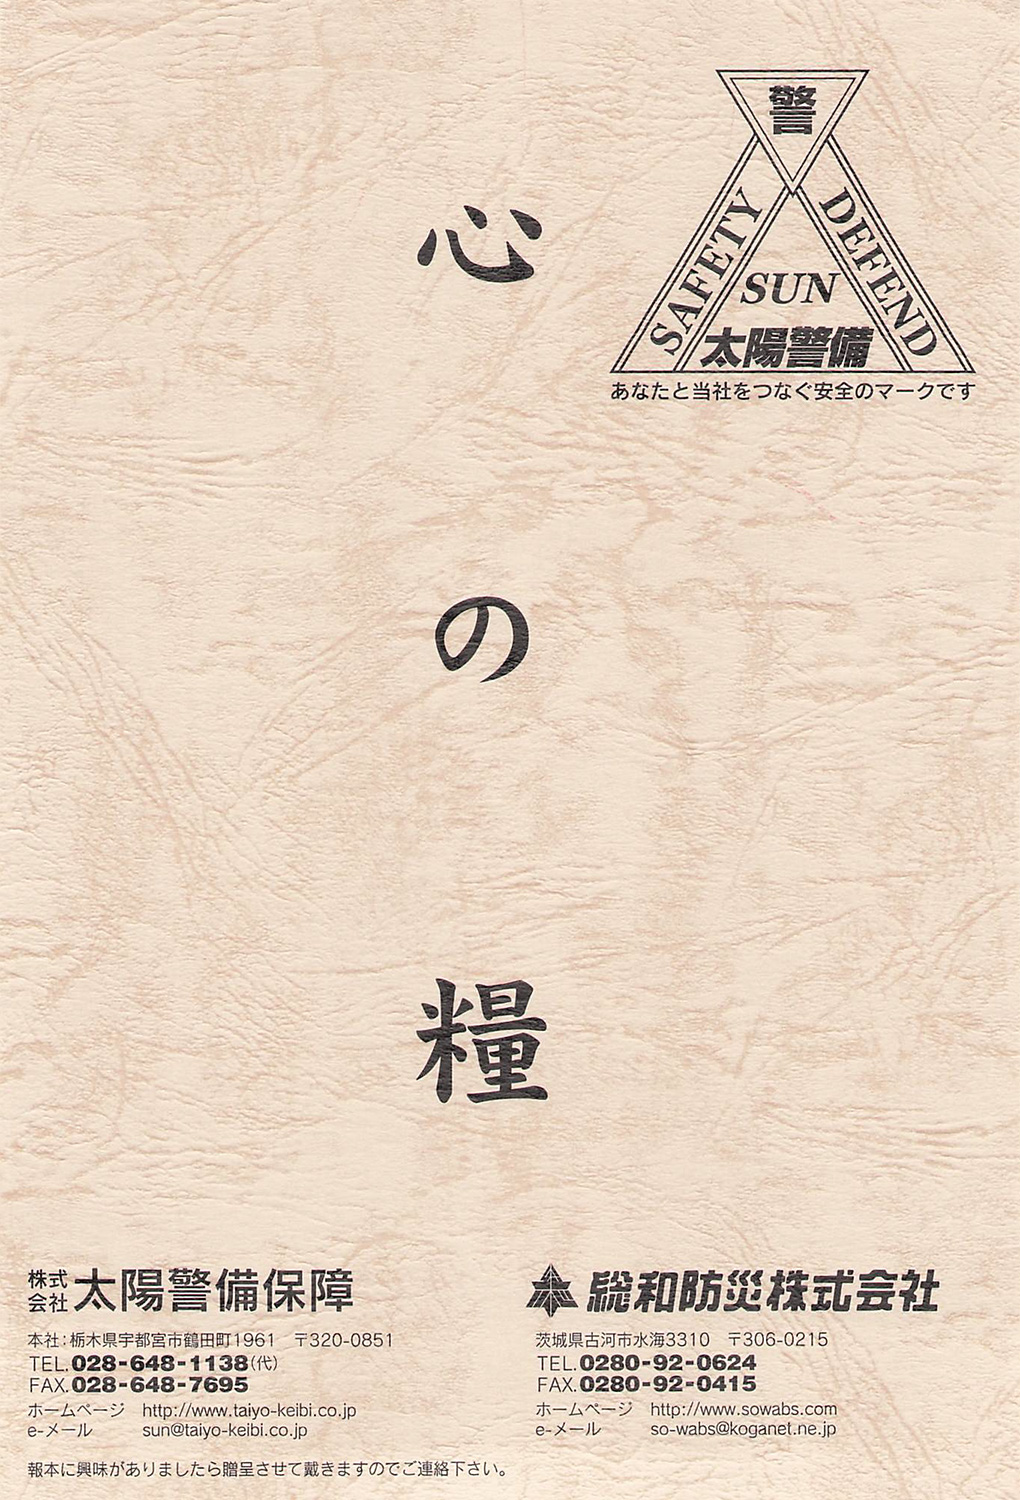 心の糧
警
SAFETY
DEFEND
SUN
太陽警備
あなたと当社をつなぐ安全のマークです
株式会社 太陽警備保障
本社:栃木県宇都宮市鶴田町1961 〒320-0851
TEL.028-648-1138(代)
FAX.028-648-7695
ホームページ http://www.taiyo-keibi.co.jp
e-メール sun@taiyo-keibi.co.jp
総和防災株式会社
茨城県古河市水海3310 〒306-0215
TEL.0280-92-0624
FAX.0280-92-0415
ホームページ http://www.sowabs.com
e-メール so-wabs@koganet.ne.jp
報本に興味がありましたら贈呈させて戴きますのでご連絡下さい。